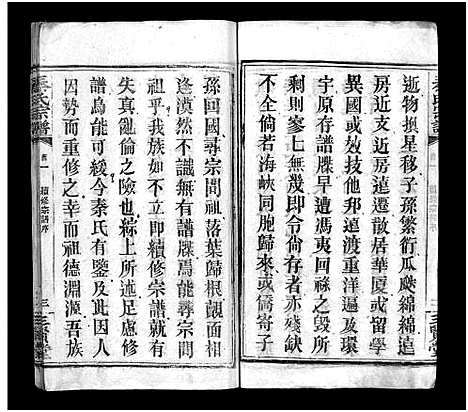 逝物換星移子孫繁衍瓜瓞綿綿遠
房近支近房遠遷散居華厦或皆
異國或效技他邦遠渡重洋遍及環
宇原存譜牒早遭馮夷回祿之毀所
剩則寥七無幾即令尚存者亦殘缺
不全倘若海峽同胞歸來或僑寄子
孫回國尋宗問祖落葉歸根覿面相
逢漠然不識無有譜牒焉能尋宗問
祖乎我族如不立即續修宗譜就有
失真亂倫之險也綜上所述足慮修
譜烏能可緩今秦氏有鑒及此因人
因勢而重修之幸而祖德淵源吾族
秦氏宗譜
首一
續修宗譜序
三
三賢堂